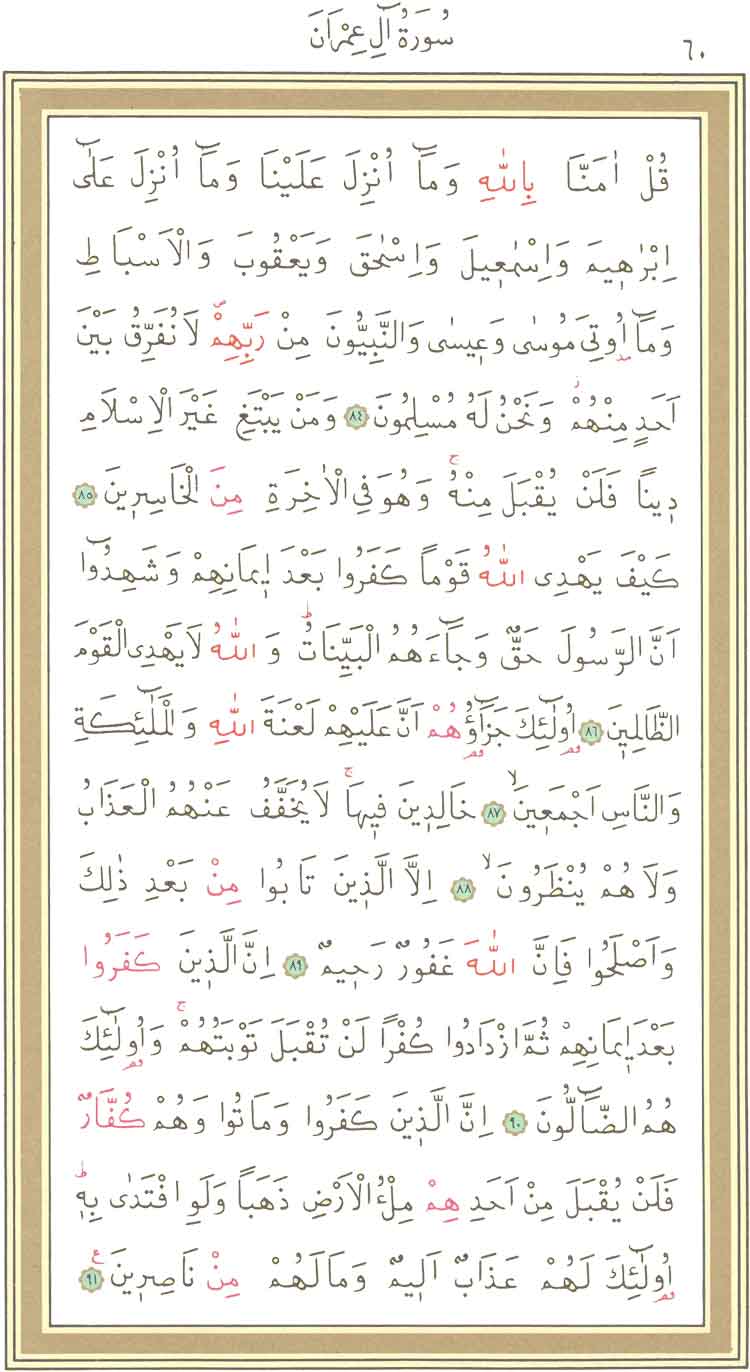 سُورَةُ اٰلِ عِمْرَانَ
٦٠
قُلْ اٰمَنَّا بِاللّٰهِ وَمَٓا اُنْزِلَ عَلَيْنَا وَمَٓا اُنْزِلَ عَلٰٓى
اِبْرٰه۪يمَ وَاِسْمٰع۪يلَ وَاِسْحٰقَ وَيَعْقُوبَ وَالْاَسْبَاطِ
وَمَٓا اُو۫تِيَ مُوسٰى وَع۪يسٰى وَالنَّبِيُّونَ مِنْ رَبِّهِمْۖ لَا نُفَرِّقُ بَيْنَ
اَحَدٍ مِنْهُمْۘ وَنَحْنُ لَهُ مُسْلِمُونَ ﴿٨٤﴾ وَمَنْ يَبْتَغِ غَيْرَ الْاِسْلَامِ
د۪يناً فَلَنْ يُقْبَلَ مِنْهُۚ وَهُوَ فِي الْاٰخِرَةِ مِنَ الْخَاسِر۪ينَ ﴿٨٥﴾
كَيْفَ يَهْدِي اللّٰهُ قَوْماً كَفَرُوا بَعْدَ ا۪يمَانِهِمْ وَشَهِدُٓوا
اَنَّ الرَّسُولَ حَقٌّ وَجَٓاءَهُمُ الْبَيِّنَاتُۜ وَاللّٰهُ لَا يَهْدِي الْقَوْمَ
الظَّالِم۪ينَ ﴿٨٦﴾ اُو۬لٰٓئِكَ جَزَٓاؤُ۬هُمْ اَنَّ عَلَيْهِمْ لَعْنَةَ اللّٰهِ وَالْمَلٰٓئِكَةِ
وَالنَّاسِ اَجْمَع۪ينَۙ ﴿٨٧﴾ خَالِد۪ينَ ف۪يهَاۚ لَا يُخَفَّفُ عَنْهُمُ الْعَذَابُ
وَلَا هُمْ يُنْظَرُونَۙ ﴿٨٨﴾ اِلَّا الَّذ۪ينَ تَابُوا مِنْ بَعْدِ ذٰلِكَ
وَاَصْلَحُوا فَاِنَّ اللّٰهَ غَفُورٌ رَح۪يمٌ ﴿٨٩﴾ اِنَّ الَّذ۪ينَ كَفَرُوا
بَعْدَ ا۪يمَانِهِمْ ثُمَّ ازْدَادُوا كُفْراً لَنْ تُقْبَلَ تَوْبَتُهُمْۚ وَاُو۬لٰٓئِكَ
هُمُ الضَّٓالُّونَ ﴿٩٠﴾ اِنَّ الَّذ۪ينَ كَفَرُوا وَمَاتُوا وَهُمْ كُفَّارٌ
فَلَنْ يُقْبَلَ مِنْ اَحَدِهِمْ مِلْءُ الْاَرْضِ ذَهَباً وَلَوِ افْتَدٰى بِه۪ۜ
اُو۬لٰٓئِكَ لَهُمْ عَذَابٌ اَل۪يمٌ وَمَا لَهُمْ مِنْ نَاصِر۪ينَ۟ ﴿٩١﴾